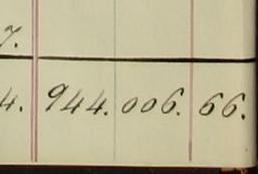 7.
4. 944. 006. 66.